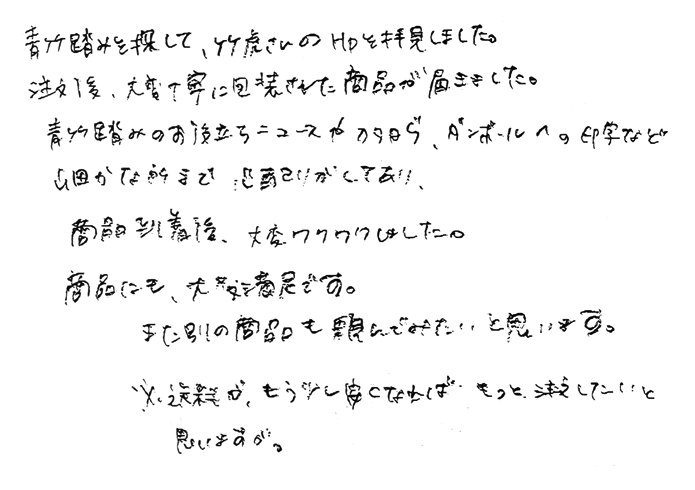 青竹踏みを探して、竹虎さんのHPを拝見しました。
注文後、大変丁寧に包装された商品が届きました。
青竹踏みのお役立ちニュースや、ダンボールへの印字など
細かな所まで気配りがしてあり、
商品到着後、大変ワクワクしました。
商品にも、大変満足です。
また別の商品も頼んでみたいと思います。
※送料が、もう少し安くなれば もっと注文したいと
思いますが。